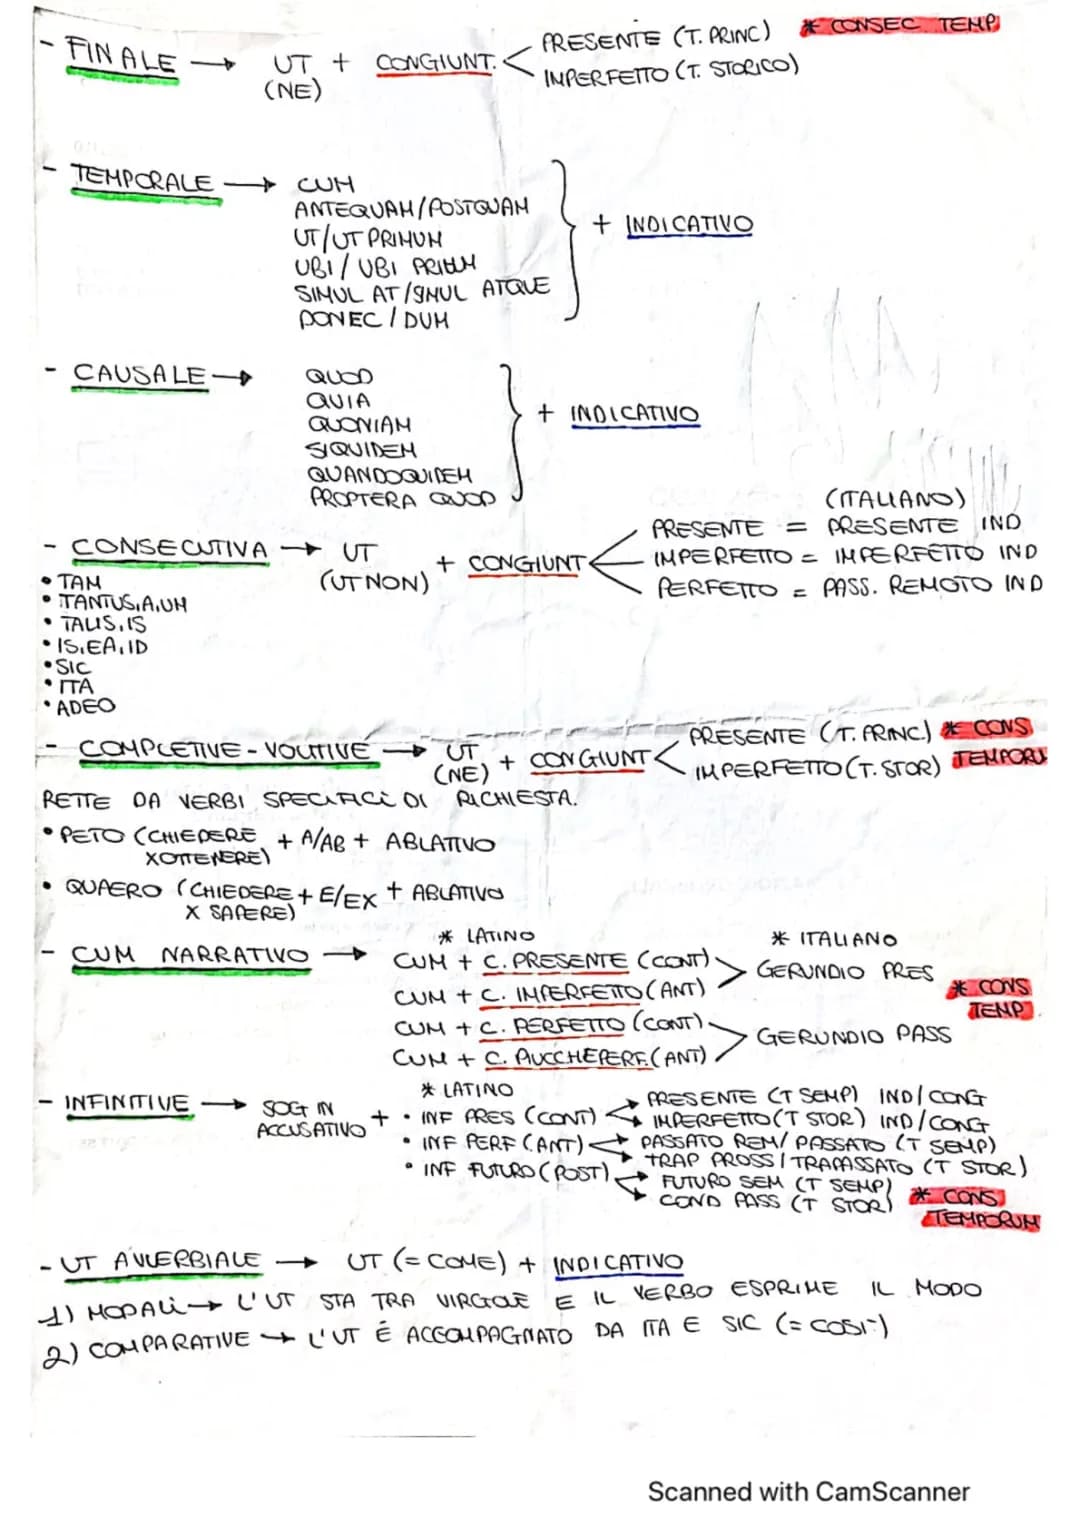 - FINALE → UT + CONGIUNT. < PRESENTE (T. PRINC) * CONSEC TEMP
(NE) IMPERFETTO (T. STORICO)
- TEMPORALE → CUM
ANTEQUAM/POSTQUAM
UT/UT PRIMUM
UBI / UBI PRIMUM
SIMUL AT/SIMUL ATQUE
DONEC / DUM
+ INDICATIVO
- CAUSALE → QUOD
QUIA
QUONIAM
SIQUIDEM
QUANDOQUIDEM
PROPTERA QUOD
+ INDICATIVO
(ITALIANO)
- CONSECUTIVA → UT (UT NON) + CONGIUNT
PRESENTE = PRESENTE IND
IMPERFETTO = IMPERFETTO IND
PERFETTO = PASS. REMOTO IND
• TAM
• TANTUS, A, UM
• TALIS, IS
• IS, EA, ID
• SIC
• ITA
• ADEO
- COMPLETIVE - VOLITIVE → UT + CONGIUNT < PRESENTE (T. PRINC.) * CONS
(NE) IMPERFETTO (T. STOR) TEMPORU
RETTE DA VERBI SPECIFICI DI RICHIESTA.
• PETO (CHIEDERE + A/AB + ABLATIVO
X OTTENERE)
• QUAERO (CHIEDERE + E/EX + ABLATIVO
X SAPERE)
* LATINO * ITALIANO
- CUM NARRATIVO → CUM + C. PRESENTE (CONT)
CUM + C. IMPERFETTO (ANT)
> GERUNDIO PRES * CONS TEMP
CUM + C. PERFETTO (CONT)
CUM + C. PIUCCHEPERF. (ANT)
> GERUNDIO PASS
* LATINO
- INFINITIVE → SOGG IN ACCUSATIVO +
• INF PRES (CONT) → PRESENTE (T SEMP) IND/CONG
→ IMPERFETTO (T STOR) IND/CONG
• INF PERF (ANT) → PASSATO REM/ PASSATO (T SEMP)
→ TRAP PROSS / TRAPASSATO (T STOR)
• INF FUTURO (POST) → FUTURO SEM (T SEMP)
→ COND PASS (T STOR) * CONS
TEMPORUM
- UT AVVERBIALE → UT (= COME) + INDICATIVO
1) MODALI → L'UT STA TRA VIRGOLE E IL VERBO ESPRIME IL MODO
2) COMPARATIVE → L'UT È ACCOMPAGNATO DA ITA E SIC (= COSI')
Scanned with CamScanner